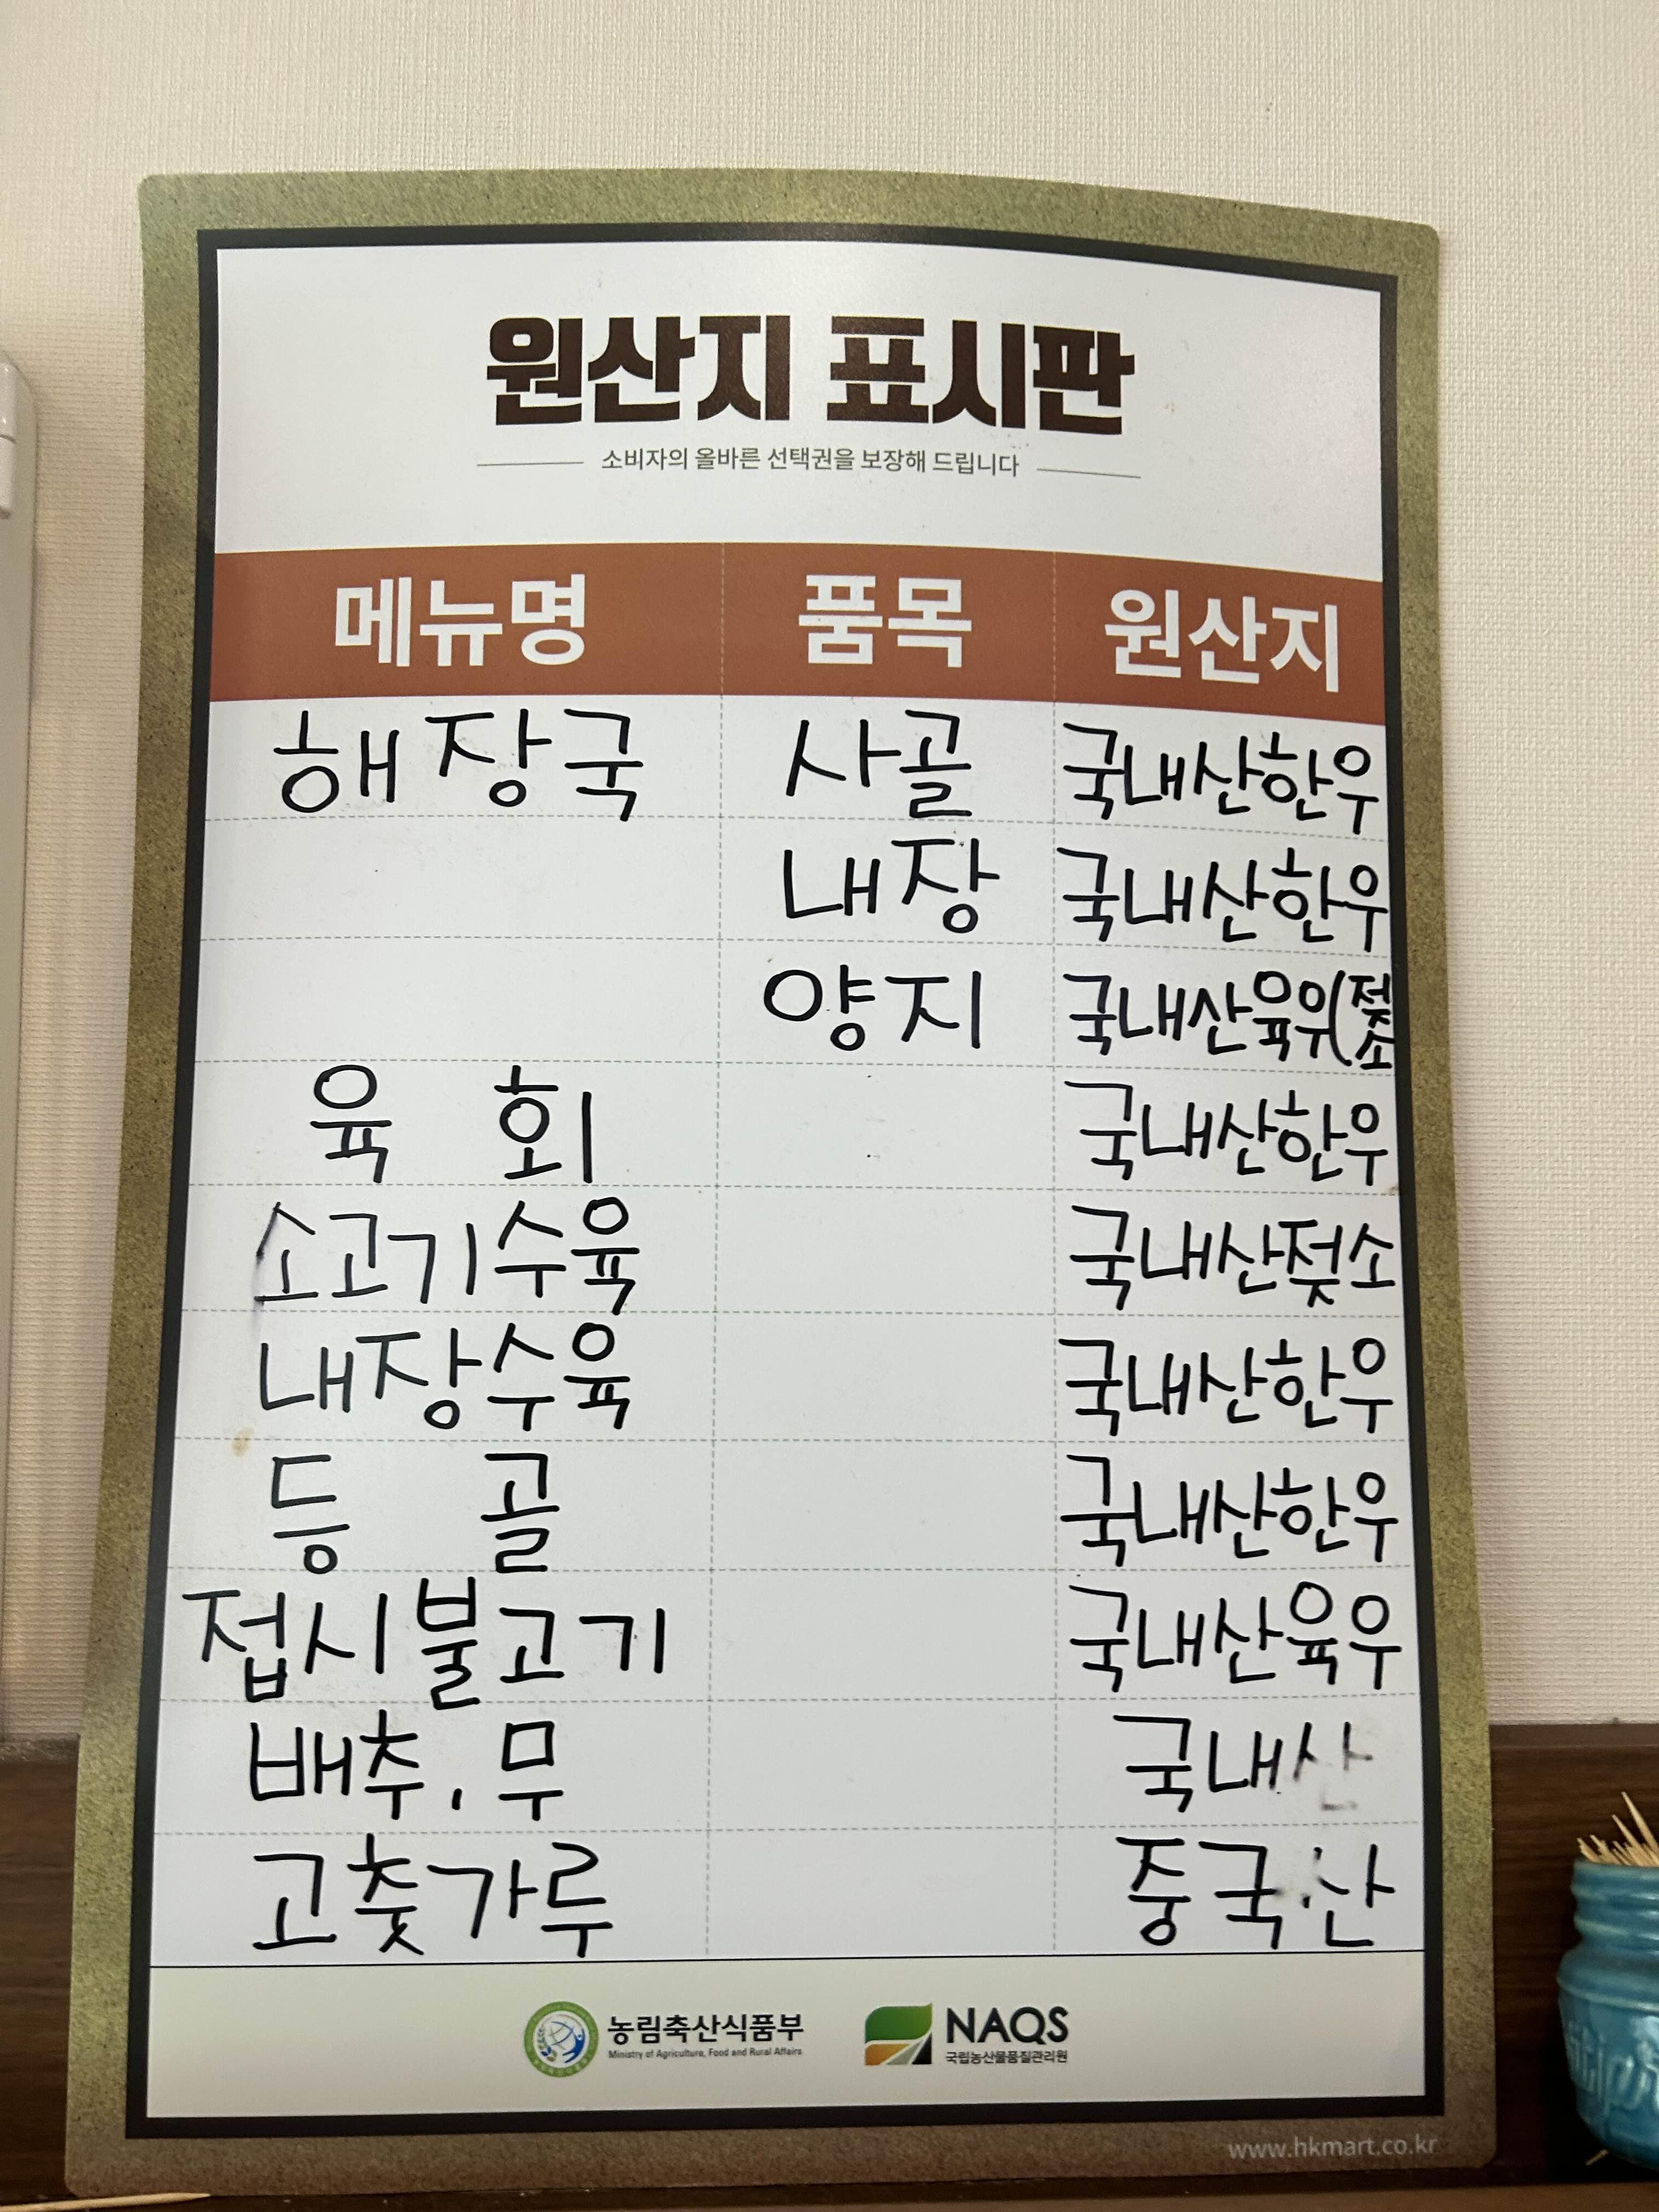 원산지 표시판
소비자의 올바른 선택권을 보장해 드립니다
메뉴명 품목 원산지
해장국 사골 국내산한우
내장 국내산한우
양지 국내산육우(젖소
육 회 국내산한우
소고기수육 국내산젖소
내장수육 국내산한우
등 골 국내산한우
접시불고기 국내산육우
배추, 무 국내산
고춧가루 중국산
농림축산식품부 NAQS
Ministry of Agriculture, Food and Rural Affairs 국립농산물품질관리원
www.hkmart.co.kr